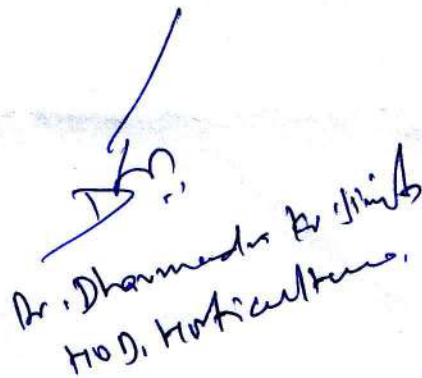 Dr. Dharmendra Kr. Singh
HOD. Horticulture.